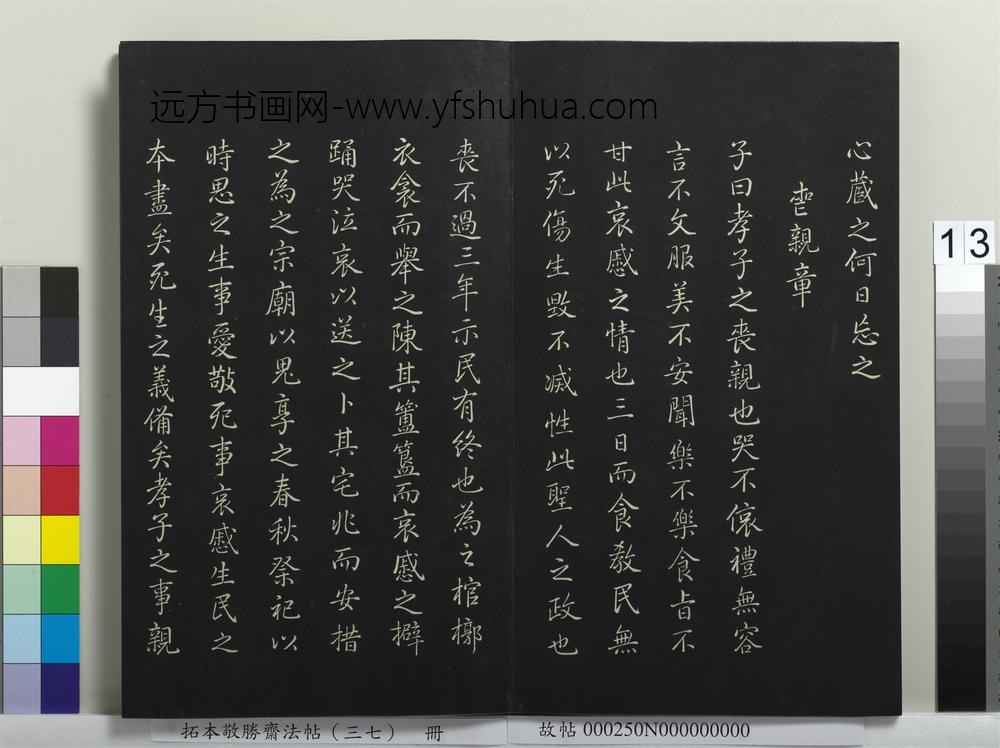 远方书画网-www.yfshuhua.com
心藏之何日忘之
喪親章
子曰孝子之喪親也哭不偯禮無容
言不文服美不安聞樂不樂食旨不
甘此哀慼之情也三日而食教民無
以死傷生毀不滅性此聖人之政也
喪不過三年示民有終也為之棺槨
衣衾而舉之陳其簠簋而哀慼之擗
踊哭泣哀以送之卜其宅兆而安措
之為之宗廟以鬼享之春秋祭祀以
時思之生事愛敬死事哀慼生民之
本盡矣死生之義備矣孝子之事親
13
拓本敬勝齋法帖（三七） 冊
故帖 000250N000000000